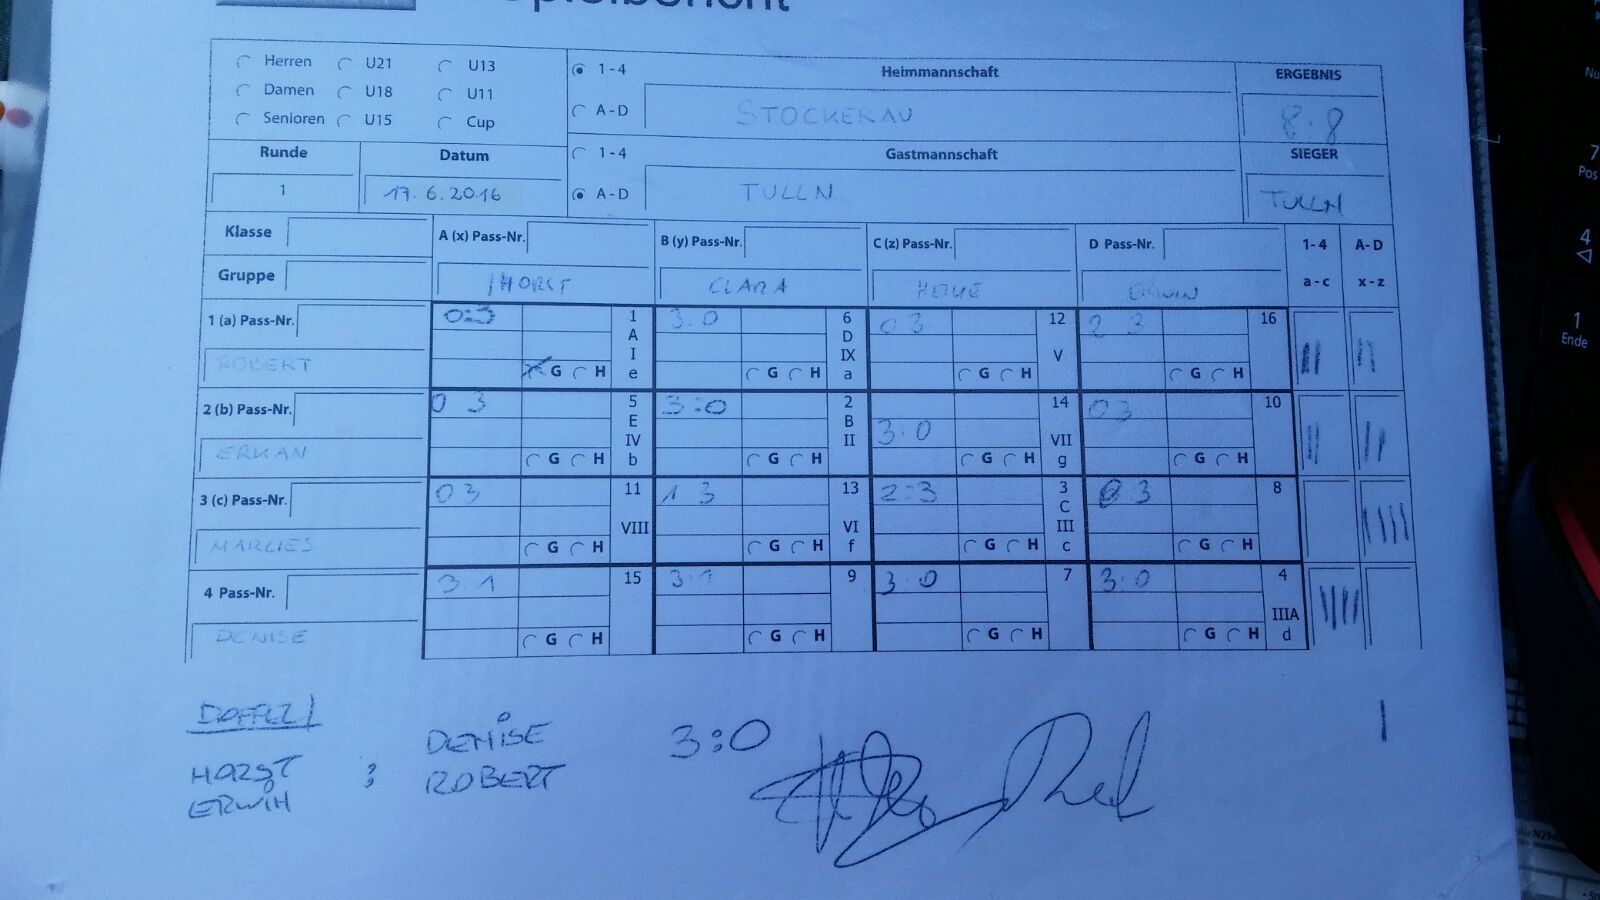 Spielbericht
Herren U21 U13
Damen U18 U11
Senioren U15 Cup
1-4 Heimmannschaft ERGEBNIS
A-D STOCKERAU 8:8
Runde Datum 1-4 Gastmannschaft SIEGER
1 17.6.2016 A-D TULLN TULLN
Klasse A (x) Pass-Nr. B (y) Pass-Nr. C (z) Pass-Nr. D Pass-Nr. 1-4 A-D
Gruppe HORST CLARA ERWIN a-c x-z
1 (a) Pass-Nr. 0:3 1 3:0 6 0 3 12 2 3 16
A D
ROBERT I IX V
G H e G H a G H G H
2 (b) Pass-Nr. 0 3 5 3:0 2 14 03 10
E B 3:0
ERKAN IV II VII
G H b G H G H g G H
3 (c) Pass-Nr. 03 11 1 3 13 2:3 3 0 3 8
C
MARLIES VIII VI III
G H G H f G H c G H
4 Pass-Nr. 3:1 15 3:1 9 3:0 7 3:0 4
IIIA
DENISE G H G H G H G H d
DOPPEL
HORST : DENISE 3:0
ERWIN ROBERT